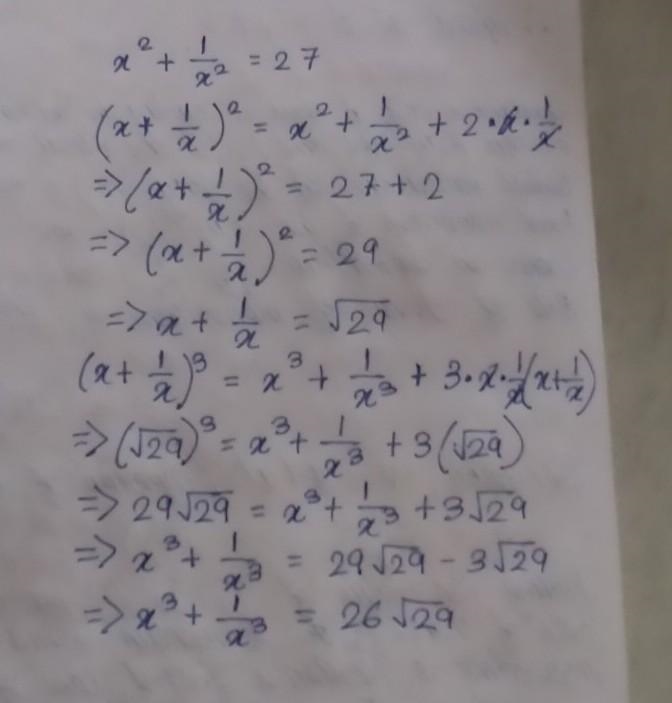 x² + 1/x² = 27
(x + 1/x)² = x² + 1/x² + 2·x·1/x
=> (x + 1/x)² = 27 + 2
=> (x + 1/x)² = 29
=> x + 1/x = √29
(x + 1/x)³ = x³ + 1/x³ + 3·x·1/x(x + 1/x)
=> (√29)³ = x³ + 1/x³ + 3(√29)
=> 29√29 = x³ + 1/x³ + 3√29
=> x³ + 1/x³ = 29√29 - 3√29
=> x³ + 1/x³ = 26√29